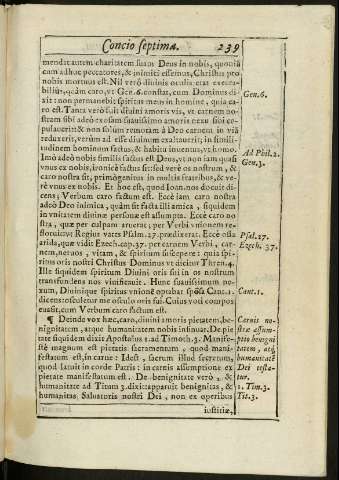 Concio septima. 239
mendat autem charitatem suam Deus in nobis, quoniã
cum adhuc peccatores, & inimici essemus, Christus pro
nobis mortuus est. Nil verò diuinis oculis erat execra-
bilius, quàm caro, vt Gen. 6. constat, cum Dominus di-
xit: non permanebit spiritus meus in homine, quia ca-
ro est. Tanta verò fuit diuini amoris vis, vt carnem no-
stram sibi adeò ex osum suauissimo amoris nexu sibi co-
pulauerit: & non solum remotam à Deo carnem in viã
reduxerit, verùm ad esse diuinum exaltauerit: in simili-
tudinem hominum factus, & habitu inuentus, vt homo.
Imò adeò nobis similis factus est Deus, vt non iam quasi
vnus ex nobis, ironicè factus sit: sed verè os nostrum, &
caro nostra sit, primogenitus in multis fratribus, & ve-
rè vnus ex nobis. Et hoc est, quod Ioan. nos docuit di-
cens; Verbum caro factum est. Eccè iam caro nostra
adeò Deo inimica, quàm sit facta illi amica, siquidem
in vnitatem diuinæ personæ est assumpta. Ecce caro no-
stra, quæ per culpam aruerat; per Verbi vnionem re-
floruit: vt Regius vates Psalm. 27. prædixerat. Ecce ossa
arida, quæ vidit Ezech. cap. 37. per carnem Verbi, car-
nem, neruos, vitam, & spiritum suscepere: quia spi-
ritus oris nostri Christus Dominus vt dicitur Thren. 4.
Ille siquidem spiritum Diuini oris sui in os nostrum
transfundens nos viuificauit. Hunc suauissimum ne-
xum, Diuinique spiritus vnionẽ optabat spõsa Cant. 1.
dicens: osculetur me osculo oris sui. Cuius voti compos
euasit, cum Verbum caro factum est.
¶ Deinde vox hæc, caro, diuini amoris pietatem, be-
nignitatem, atque humanitatem nobis insinuat. De pie-
tate siquidem dixit Apostolus 1. ad Timoth. 3. Manife-
stè magnum est pietatis sacramentum, quod mani-
festatum est, in carne: Idest, sacrum illud secretum,
quod latuit in corde Patris: in carnis assumptione ex
pietate manifestatum est. De benignitate verò, &
humanitate ad Titum 3. dixit: apparuit benignitas, &
humanitas Saluatoris nostri Dei, non ex operibus
iustitiæ,
Gen. 6.
Ad Phil. 2.
Gen. 3.
Psal. 27.
Ezech. 37.
Cant. 1.
Carnis no-
stræ assum-
ptio benigni
tatem, atq;
humanitatẽ
Dei testa-
tur.
1. Tim. 3.
Tit. 3.